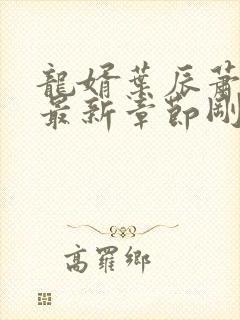 龍婿葉辰蕭
最新章節剛
高羅鄉